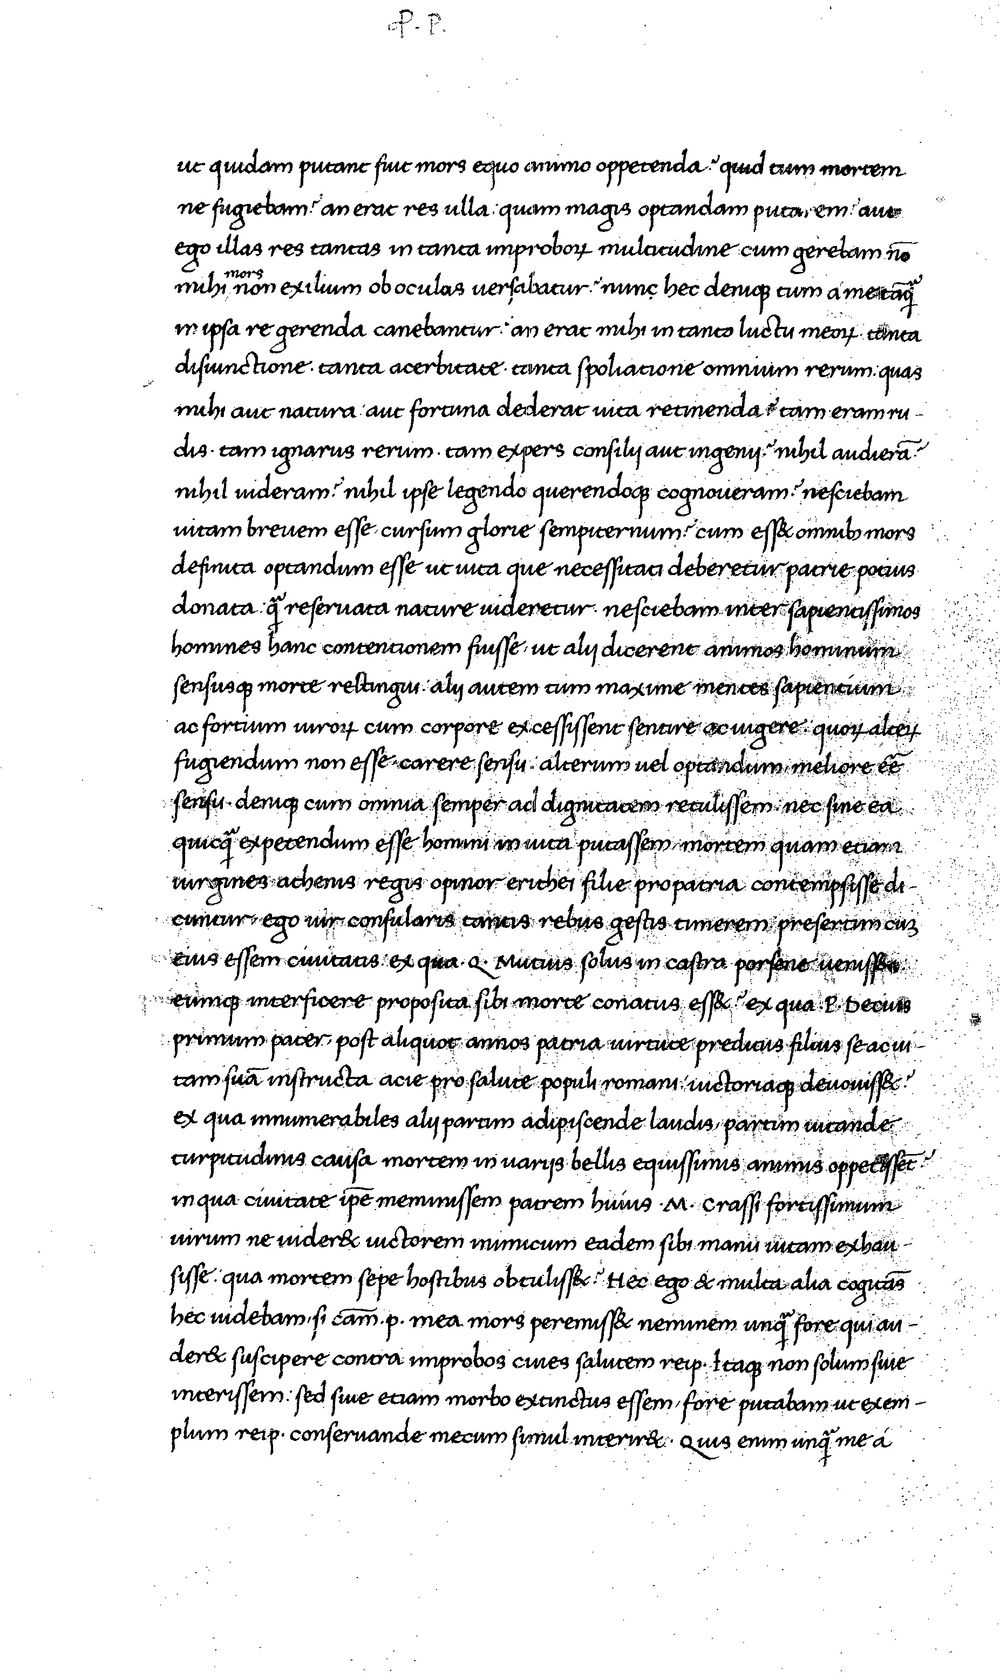 P. P.
ut quidam putant fuit mors equo animo oppetenda? quid tum mortem
ne fugiebam? an erat res ulla quam magis optandam putarem? aut
ego illas res tantas in tanta improboꝝ multitudine cum gerebam nō
mihi mors non exilium ob oculos uersabatur? nunc hec deniqꝫ tum a me tāqꝫ̃
in ipsa re gerenda canebantur? an erat mihi in tanto luctu meoꝝ tanta
disiunctione· tanta acerbitate· tanta spoliatione omnium rerum: quas
mihi aut natura aut fortuna dederat uita retinenda? tam eram ru-
dis· tam ignarus rerum· tam expers consilij aut ingenij? nihil audierā?
nihil uideram? nihil ipse legendo querendoqꝫ cognoueram? nesciebam
uitam breuem esse· cursum glorie sempiternum? cum ess& omnibꝫ mors
definita optandum esse ut uita que necessitati deberetur patrie potius
donata q̃ reseruata nature uideretur· nesciebam inter sapientissimos
homines hanc contentionem fuisse· ut alij dicerent animos hominum
sensusqꝫ morte restingui: alij autem tum maxime mentes sapientium
ac fortium uiroꝝ cum corpore excessissent sentire ac uigere: quoꝝ alteꝝ
fugiendum non esse carere sensu: alterum uel optandum meliore eē
sensu· deniqꝫ cum omnia semper ad dignitatem retulissem· nec sine ea
quicq̃ expetendum esse homini in uita putassem· mortem quam etiam
uirgines athenis regis opinor erithei filie pro patria contempsisse di-
cuntur· ego uir consularis tantis rebus gestis timerem· presertim cuꝫ
eius essem ciuitatis ex qua Q. Mutius solus in castra porsene uenisset
eumqꝫ interficere proposita sibi morte conatus ess&? ex qua P. Decius
primum pater· post aliquot annos patria uirtute preditus filius se ac ui-
tam suā instructa acie pro salute populi romani uictoriaqꝫ deuouiss&?
ex qua innumerabiles alij partim adipiscende laudis· partim uitande
turpitudinis causa mortem in uarijs bellis equissimis animis oppetissēt?
in qua ciuitate ipē meminissem patrem huius ·M· Crassi fortissimum
uirum ne uider& uictorem inimicum eadem sibi manu uitam exhau-
sisse: qua mortem sepe hostibus obtuliss&? Hec ego & multa alia cogitās
hec uidebam· si cām ·p· mea mors peremiss& neminem unq̃ fore qui au-
der& suscipere contra improbos ciues salutem reip· Itaqꝫ non solum siue
interissem: sed siue etiam morbo extinctus essem· fore putabam ut exem-
plum reip· conseruande mecum simul interir&· Quis enim unq̃ me a